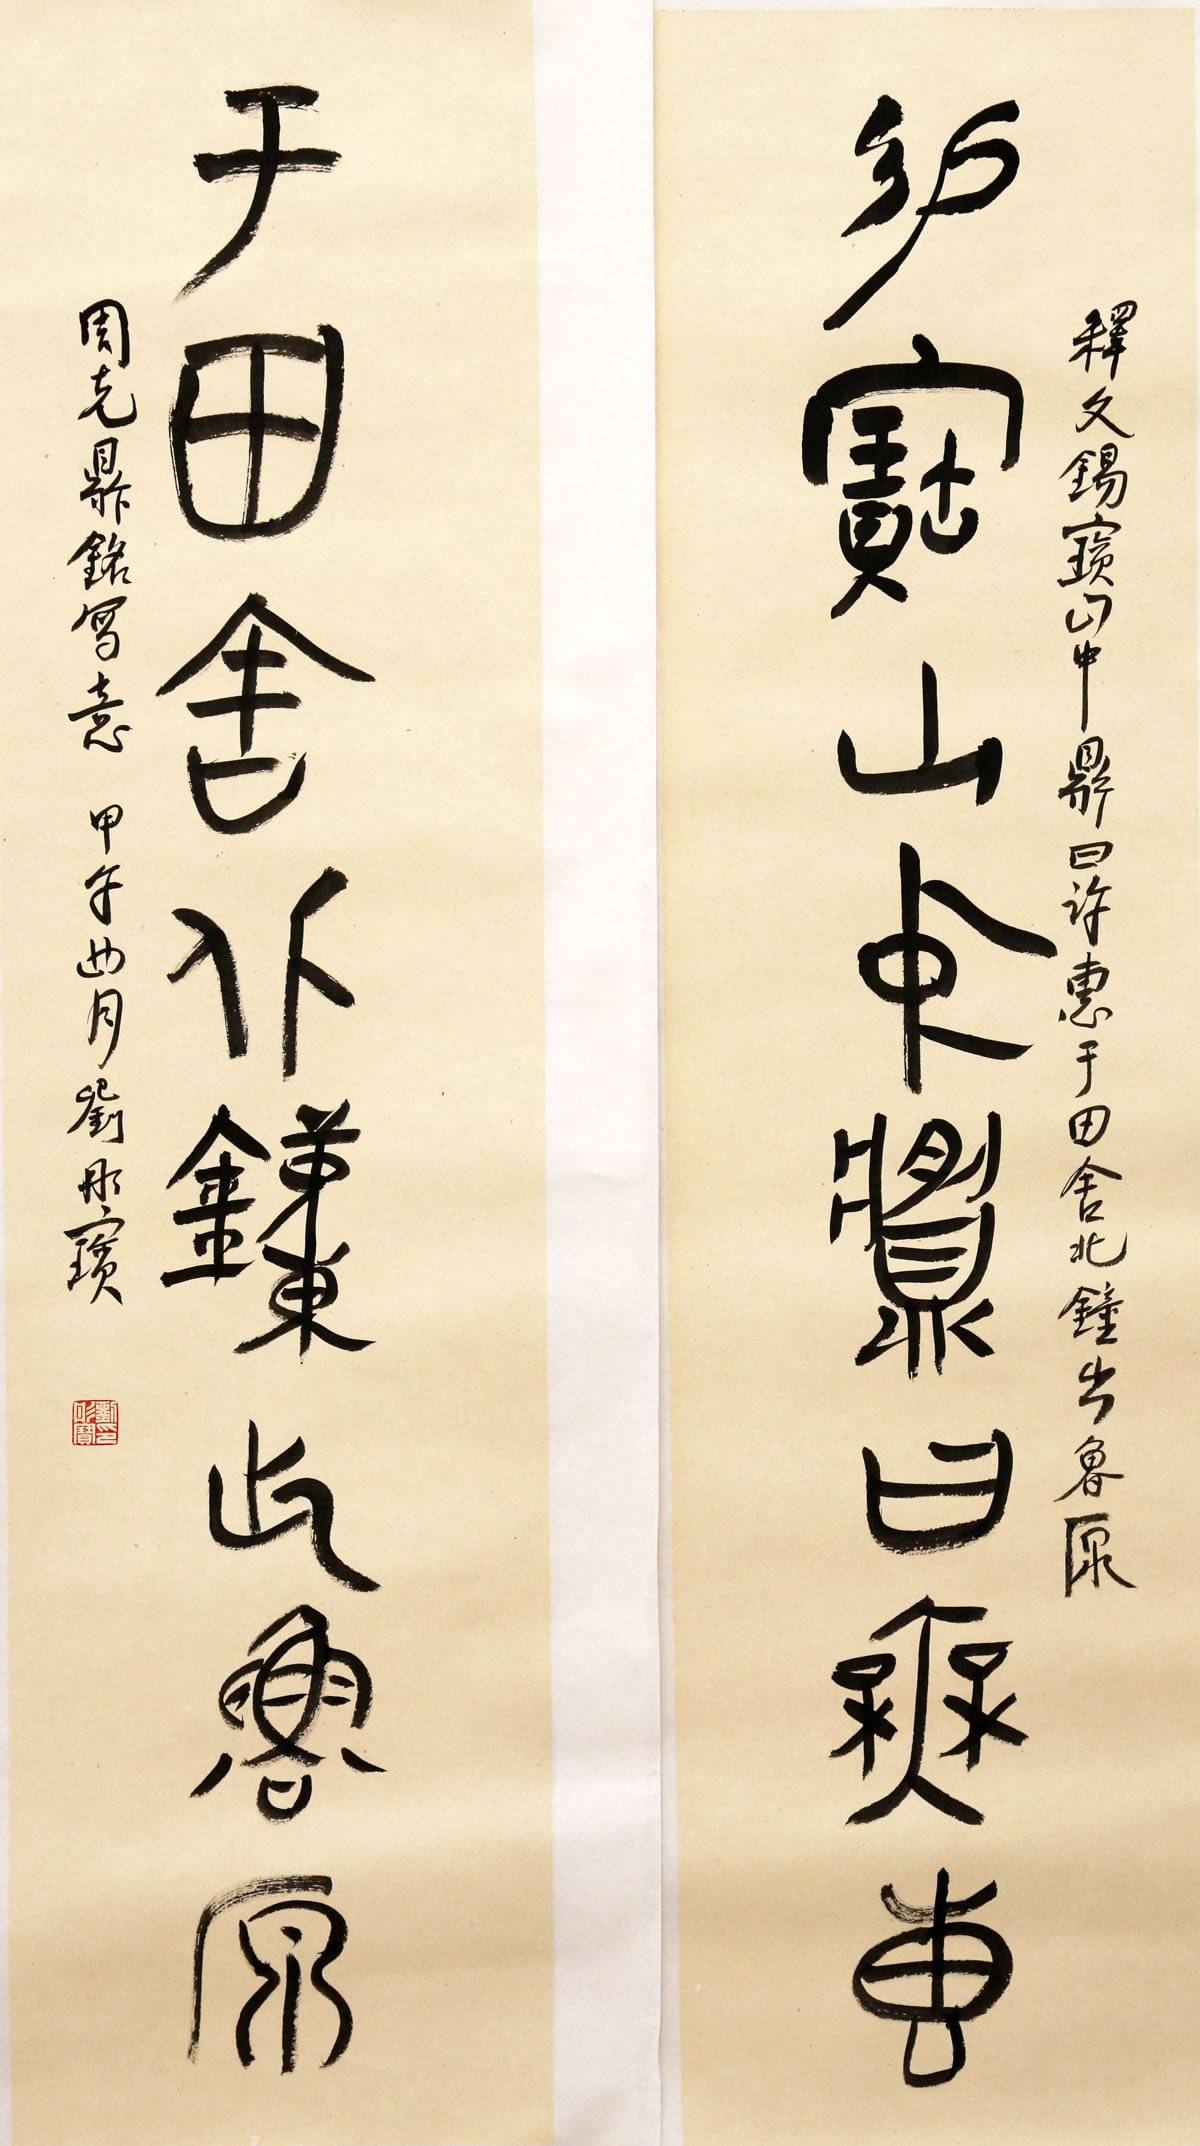 釋文錫寶山中鼎曰許惠于田舍北鐘出魯原
錫寶山中鼎曰許惠
于田舍北鐘出魯原
周克鼎銘寫意 甲午四月劉彤寶